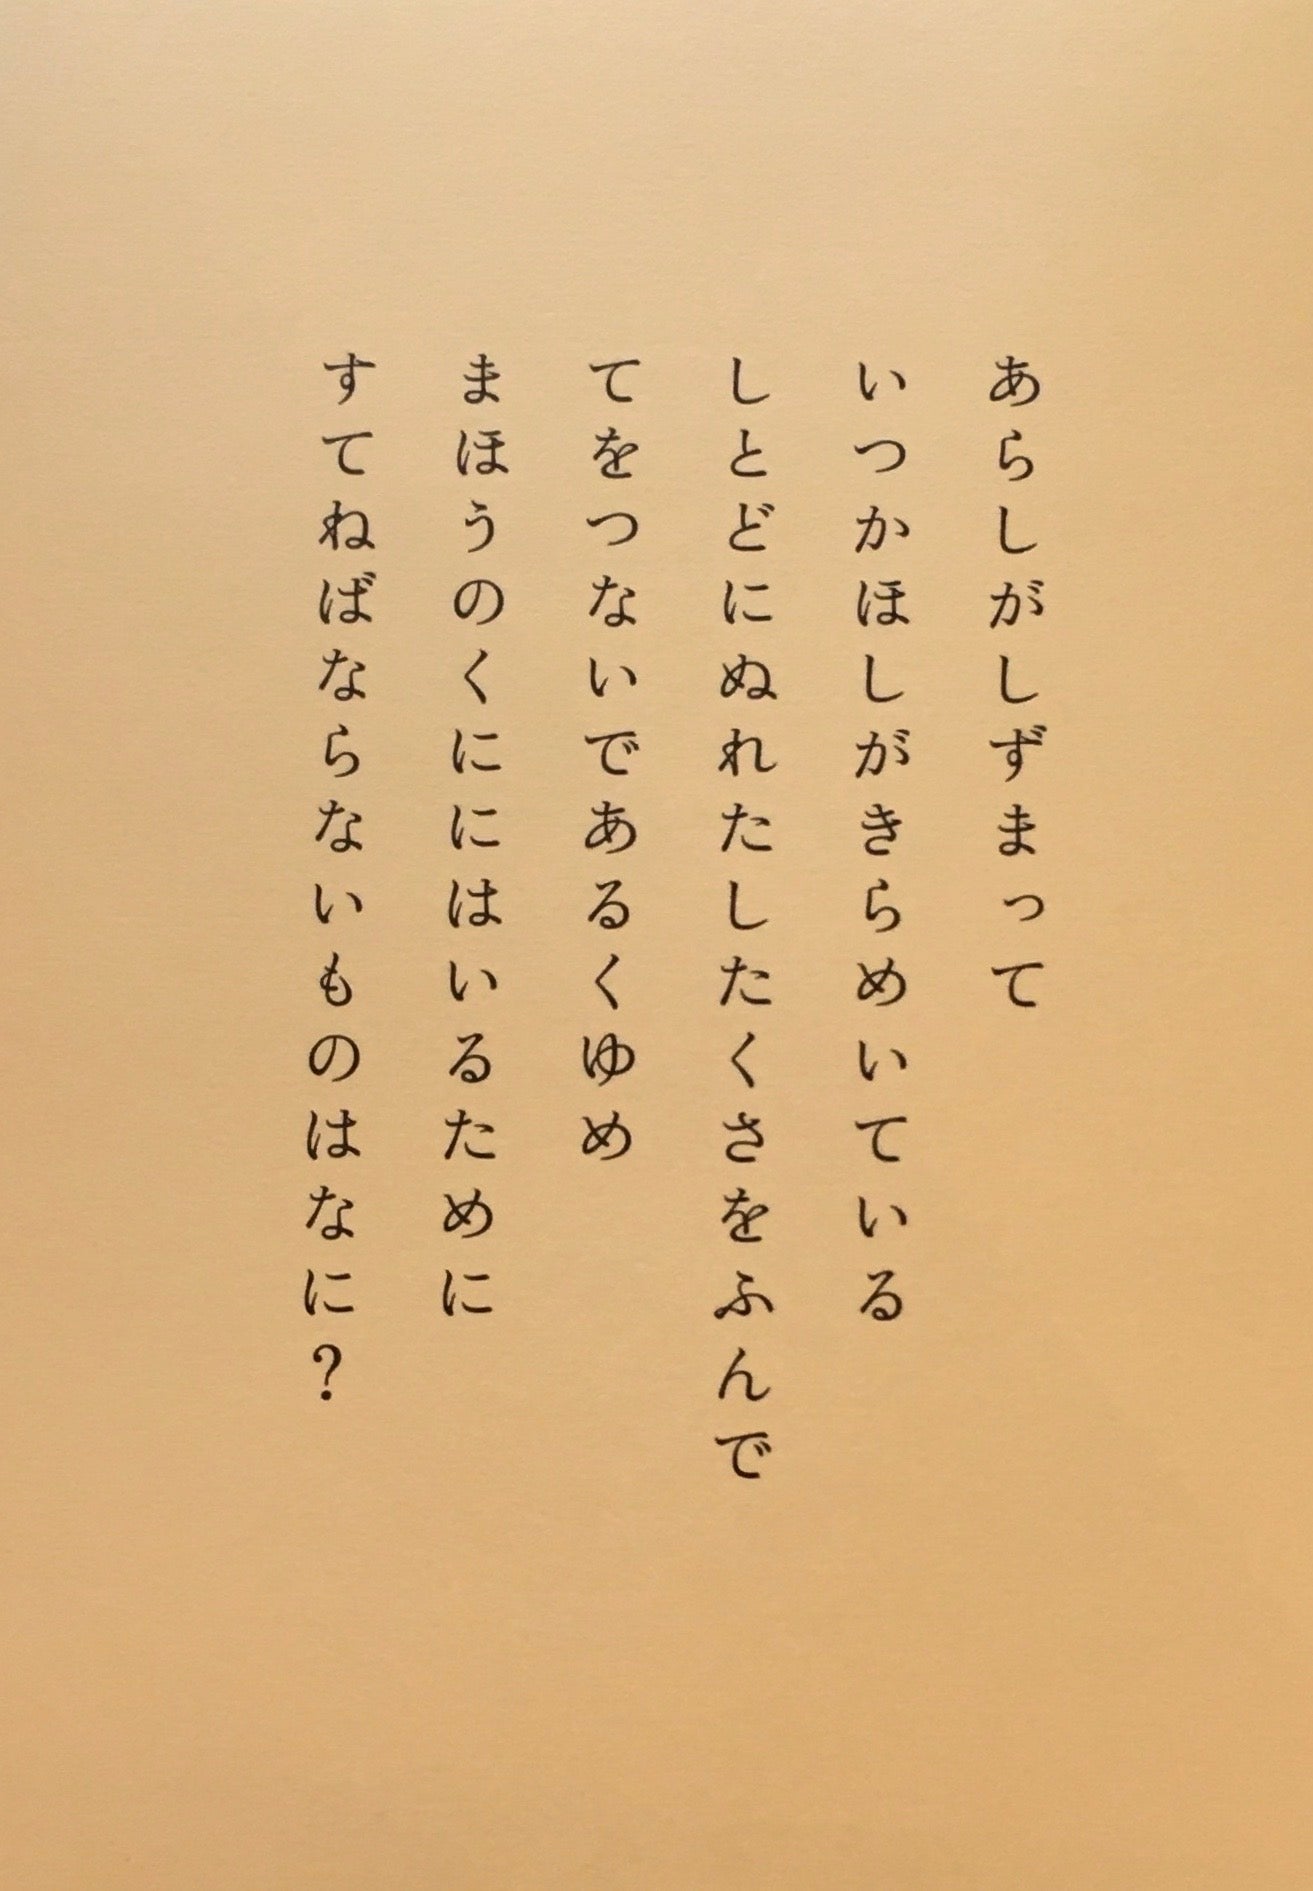 あらしがしずまって
いつかほしがきらめいている
しとどにぬれたしたくさをふんで
てをつないであるくゆめ
まほうのくににはいるために
すてねばならないものはなに?